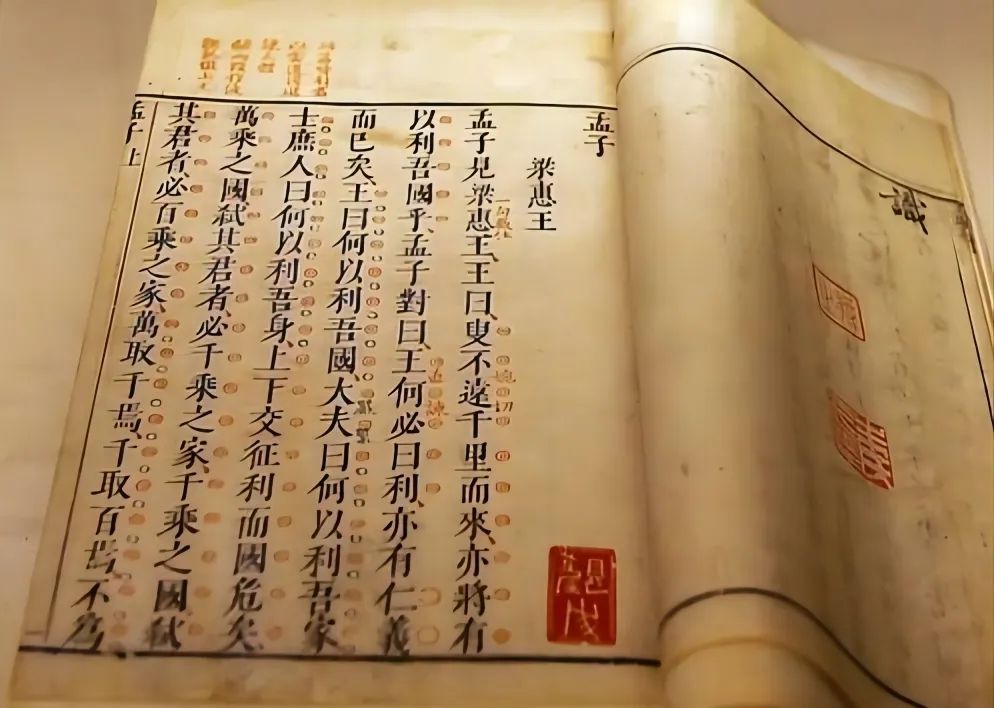 識
孟子
梁惠王
孟子見梁惠王、王曰、叟不遠千里而來、亦將有
以利吾國乎、孟子對曰、王何必曰利、亦有仁義
而已矣、王曰何以利吾國、大夫曰何以利吾家
士庶人曰何以利吾身、上下交征利而國危矣
萬乘之國弑其君者、必千乘之家、千乘之國弑
其君者、必百乘之家、萬取千焉、千取百焉、不爲
孟子 上